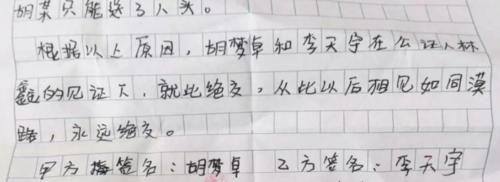 胡某只能送了人头。
根据以上原因,胡梦卓和李天宇在公证人林
鑫的见证下,就此绝交,从此以后相见如同漠
路,永远绝交。
甲方签名:胡梦卓 乙方签名:李天宇